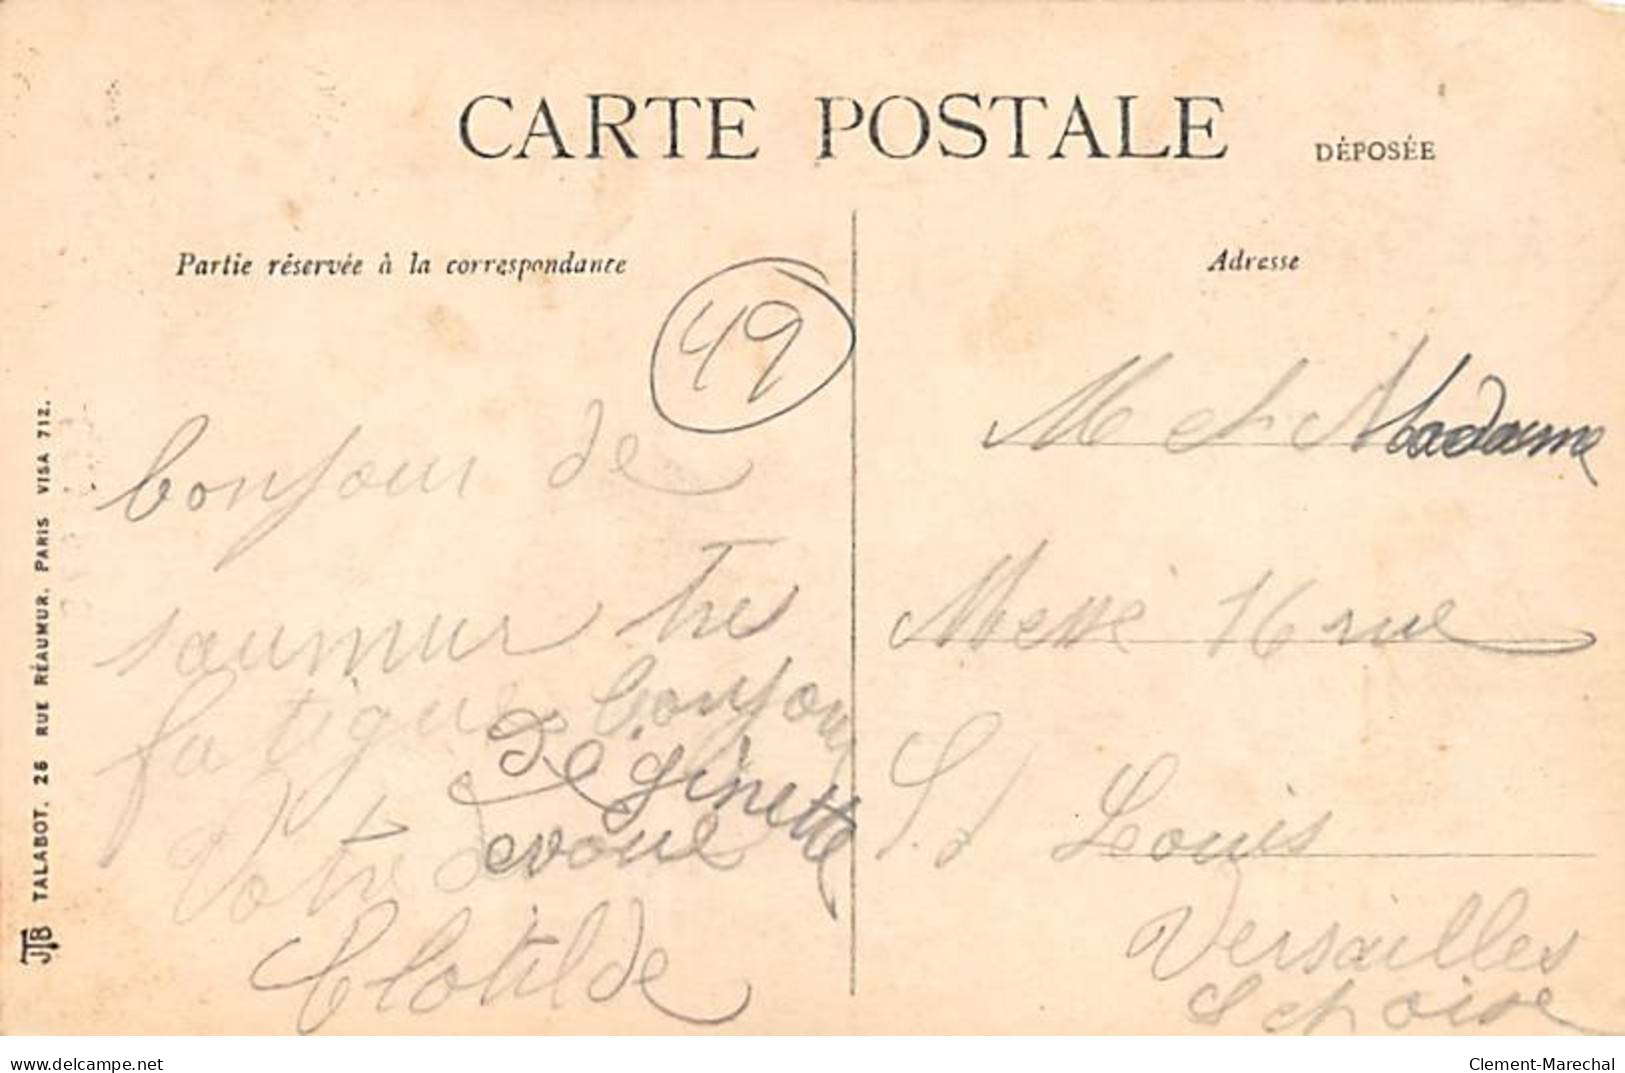 CARTE POSTALE
DÉPOSÉE
Partie réservée à la correspondance
Adresse
49
bonjour de
saumur Tres
fatigue bonjour
de ginette
Votre devoué
Clotilde
M et Madame
Messé 16 rue
St Louis
Versailles
S et oise
JTB TALABOT, 26 RUE RÉAUMUR, PARIS VISA 712.
www.delcampe.net
Clement-Marechal